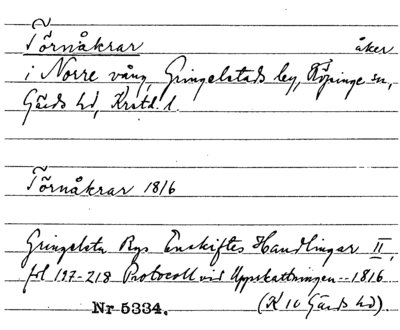 Törnåkrar åker
i Norre vång, Gringelstads by, Köpinge sn,
Gärds hd, Krstd. l.
Törnåkrar 1816
Gringelsta Bys Enskiftes Handlingar II,
fol 197-218 Protocoll vid Uppskattningen -- 1816
Nr 5334. (K 10 Gärds hd).